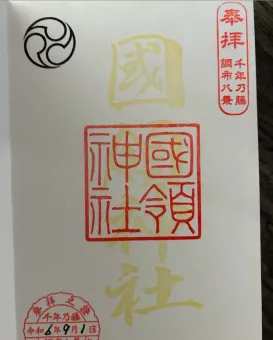 奉拝
千年乃藤
調布八景
國領神社
國領
神社
千年乃藤
令和6年9月1日